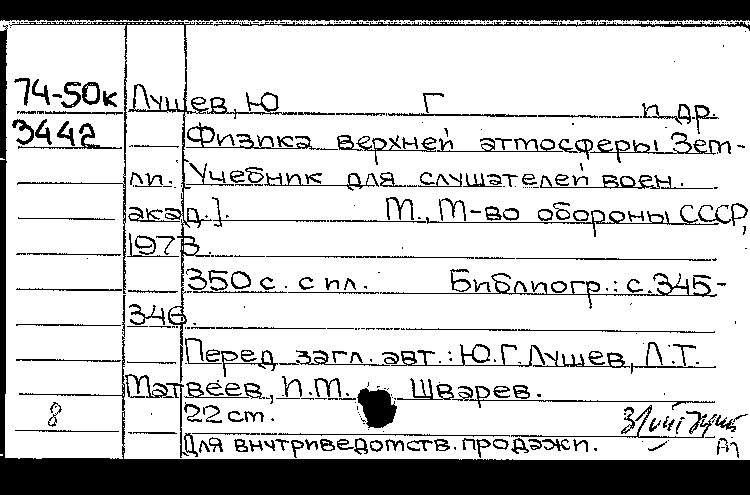 74-50к Лушев, Ю Г и др.
3442 Физика верхней атмосферы Зем-
ли. [Учебник для слушателей воен.
акад.]. М., М-во обороны СССР,
1973.
350 с. с ил. Библиогр.: с. 345-
346.
Перед загл. авт.: Ю.Г. Лушев, Л.Т.
Матвеев, И.М. Шварев.
8 22 cm.
Для внутриведомств. продажи.